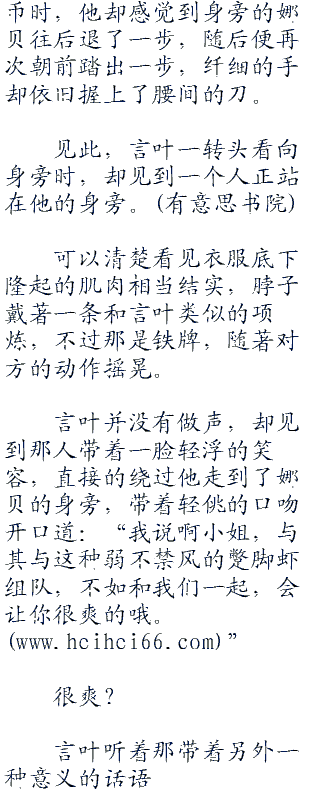 币时，他却感觉到身旁的娜
贝往后退了一步，随后便再
次朝前踏出一步，纤细的手
却依旧握上了腰间的刀。
见此，言叶一转头看向
身旁时，却见到一个人正站
在他的身旁。(有意思书院)
可以清楚看见衣服底下
隆起的肌肉相当结实，脖子
戴著一条和言叶类似的项
炼，不过那是铁牌，随著对
方的动作摇晃。
言叶并没有做声，却见
到那人带着一脸轻浮的笑
容，直接的绕过他走到了娜
贝的身旁，带着轻佻的口吻
开口道：“我说啊小姐，与
其与这种弱不禁风的蹩脚虾
组队，不如和我们一起，会
让你很爽的哦。
(www.hcihci66.com)”
很爽？
言叶听着那带着另外一
种意义的话语